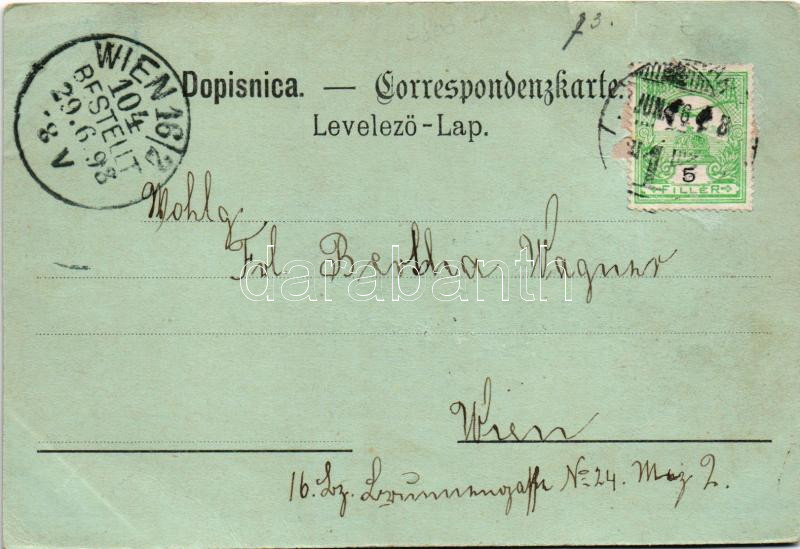 73.
WIEN 16/2
104
BESTELLT
29.6.98
8. V
Dopisnica. — Correspondenzkarte.
Levelező-Lap.
JUN
5
FILLÉR
Wohlg.
Frl. Bertha Wagner
darabanth
Wien
16. Bz. Brunnengasse No 24. Mez 2.